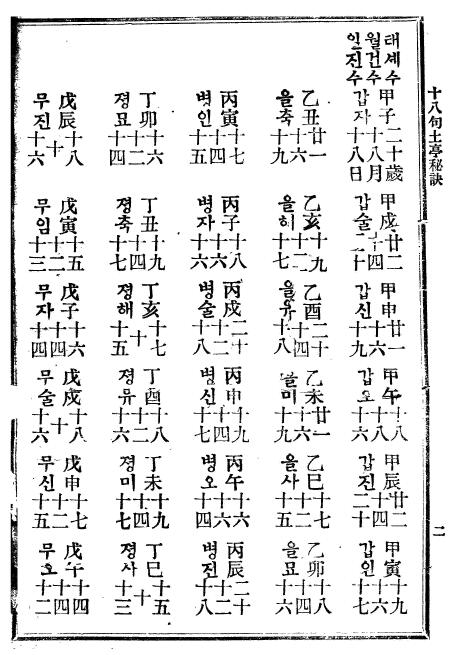 十八句土亭秘訣
태세수 甲子二十歲 甲戌廿二 甲申廿一 甲午十八 甲辰廿二 甲寅十九
월건수 十八月 十四 十六 十八 十四 十六
일진수 갑자十八日 갑술二十 갑신十九 갑오十六 갑진二十 갑인十七
乙丑廿一 乙亥十九 乙酉二十 乙未廿一 乙巳十七 乙卯十八
十六 十二 十四 十六 十二 十四
을축十九 을해十七 을유十八 을미十九 을사十五 을묘十六
丙寅十七 丙子十八 丙戌二十 丙申十九 丙午十六 丙辰二十
十四 十六 十二 十四 十六 十二
병인十五 병자十六 병술十八 병신十七 병오十四 병진十八
丁卯十六 丁丑十九 丁亥十七 丁酉十八 丁未十九 丁巳十五
十二 十四 十 十二 十四 十
졍묘十四 졍축十七 졍해十五 졍유十六 졍미十七 졍사十三
戊辰十八 戊寅十五 戊子十六 戊戌十八 戊申十七 戊午十四
十 十二 十四 十 十二 十四
무진十六 무임十三 무자十四 무술十六 무신十五 무오十二
二